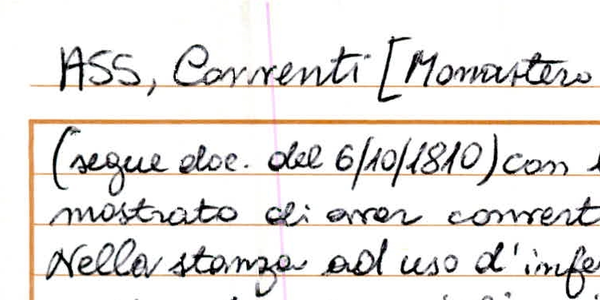 ASS, Correnti [Monastero
(segue doc. del 6/10/1810) con
mostrato di aver convert
Nella stanza ad uso d'infe